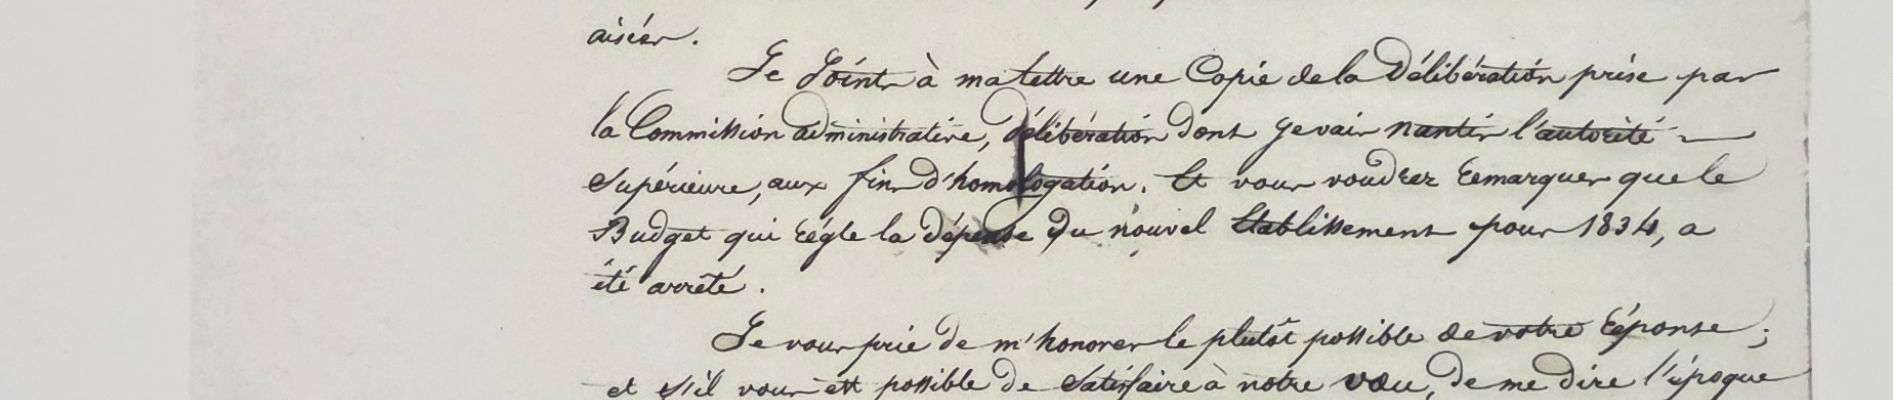 aisées.
Je Joints à ma lettre une Copie de la Délibération prise par
la Commission administrative, délibération dont je vais nantir l'autorité
Supérieure, aux fins d'homologation. Et vous voudrez remarquer que le
Budget qui régle la dépense du nouvel Etablissement pour 1834, a
été arrêté.
Je vous prie de m'honorer le plutôt possible de votre réponse;
et s'il vous est possible de Satisfaire à notre vœu, de me dire l'époque